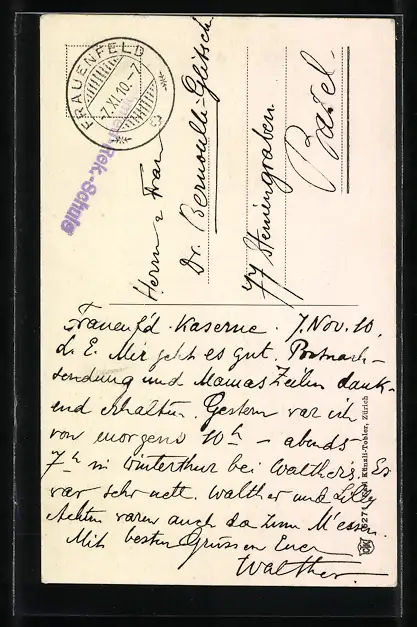 FRAUENFELD
-7.XI.10.-7
Rek.-Schule
Herrn & Frau
Dr. Bernoulli-Glitsch
77 Steinengraben.
Basel.
Frauenf'd. Kaserne. 7. Nov. 10.
L. E. Mir geht es gut. Postnach-
sendung und Mamas Zeilen dank-
end erhalten. Gestern war ich
von morgens 10h - abends
7h in Winterthur bei Walthers. Es
war sehr nett. Walther und Lilly
waren auch da zum M'essen.
Mit besten Grüssen Euer
Walther.
Künzli-Tobler, Zürich